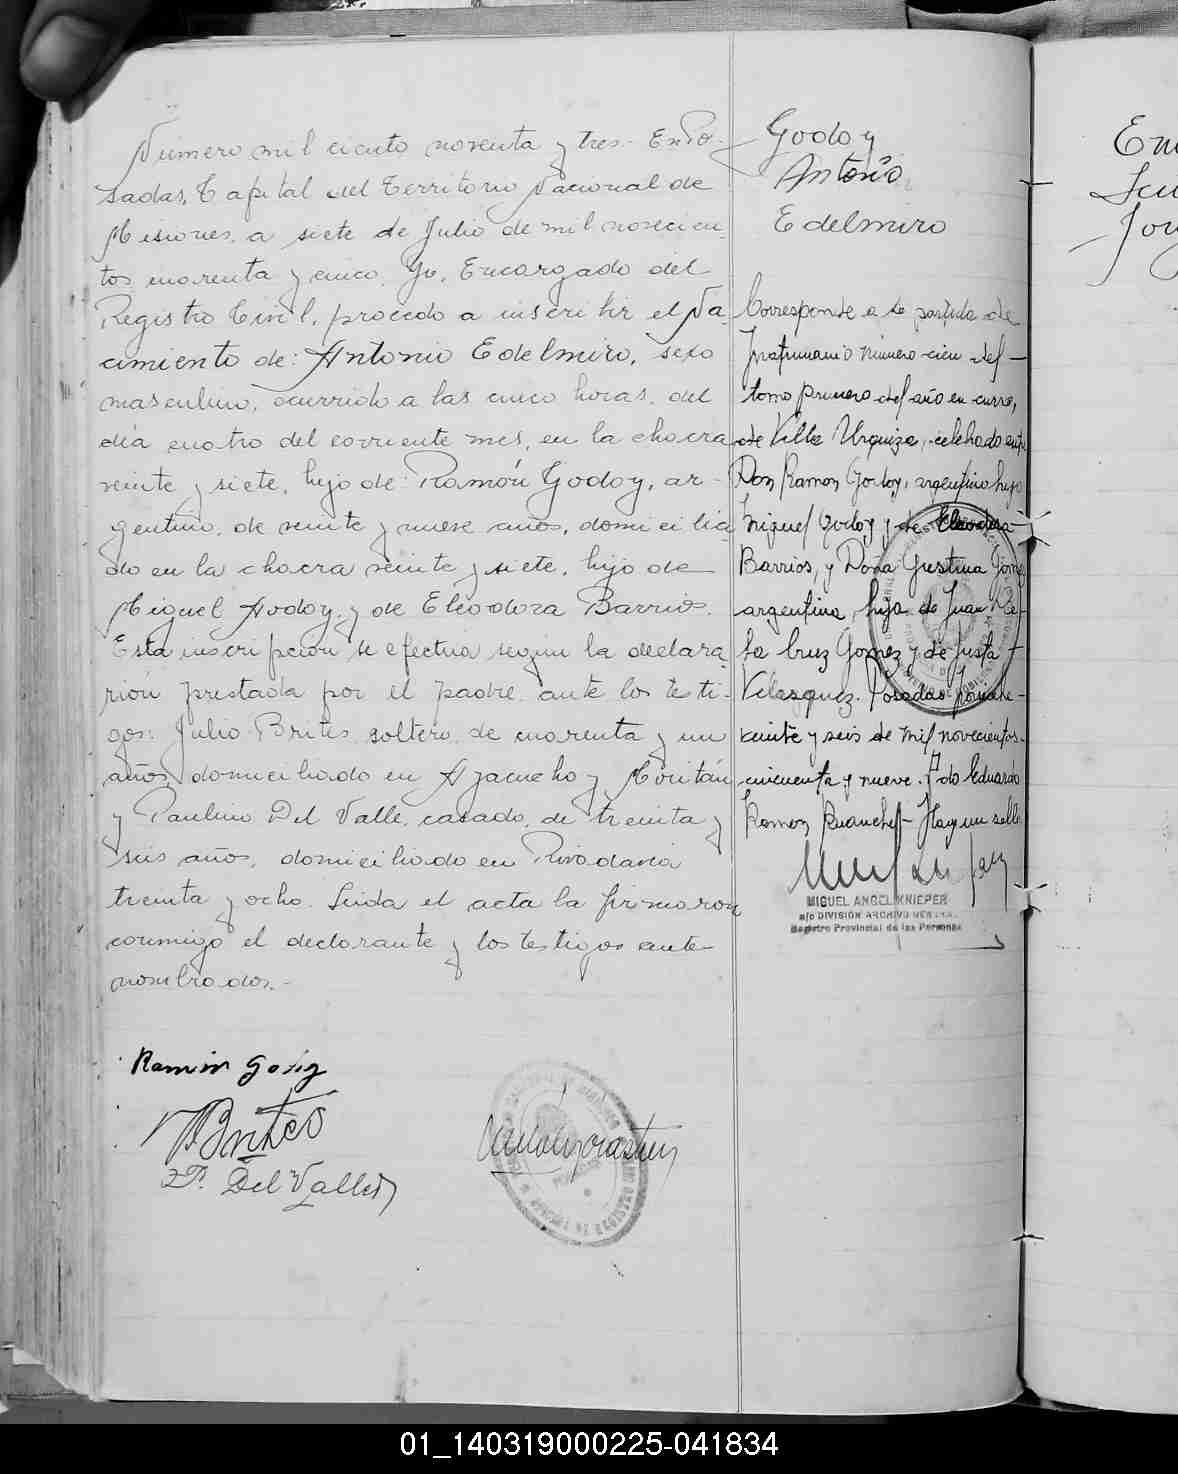 Número mil ciento noventa y tres. En Po-
sadas, Capital del Territorio Nacional de
Misiones, a siete de Julio de mil novecien-
tos cuarenta y cinco. Yo, Encargado del
Registro Civil, procedo a inscribir el Na-
cimiento de: Antonio Edelmiro, sexo
masculino, ocurrido a las cinco horas, del
día cuatro del corriente mes, en la chacra
veinte y siete, hijo de Ramón Godoy, ar-
gentino, de veinte y nueve años, domicilia
do en la chacra veinte y siete, hijo de
Miguel Godoy, y de Eleodora Barrios.
Esta inscripción se efectúa según la declara
ción prestada por el padre, ante los testi-
gos: Julio Brites, soltero, de cuarenta y un
años, domiciliado en Ayacucho y
y Paulino Del Valle, casado, de treinta y
seis años, domiciliado en Rivadavia
treinta y ocho. Leída el acta la firmaron
conmigo el declarante y los testigos ante-
nombrados.-
Ramón Godoy
Brites
P. Del Valle
Godoy
Antonio
Edelmiro
Corresponde a la partida de
Matrimonio número cien del
tomo primero del año en curso,
de Villa Urquiza, celebrado entre
Don Ramon Godoy, argentino hijo
Miguel Godoy y de Eleodora
Barrios, y Doña Gómez
argentina, hija de Juan de
la Cruz Gomez y de Justa
Velasquez. Posadas,
veinte y seis de mil novecientos
cincuenta y nueve. Fdo Eduardo
Ramon Hay un sello
MIGUEL ANGEL KNIEPER
a/c DIVISIÓN ARCHIVO GENERAL
Registro Provincial de las Personas
01_140319000225-041834